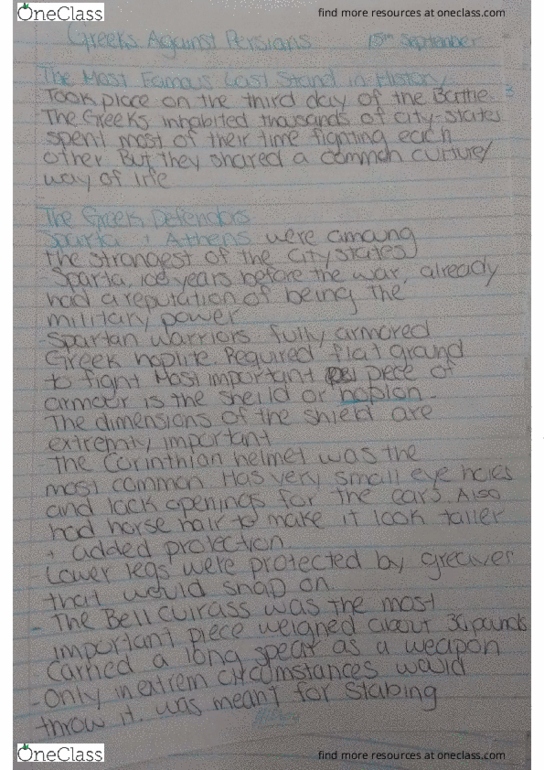 OneClass
find more resources at oneclass.com
Greeks Against Persians 15th September
The Most Famous Last Stand in History
Took place on the third day of the Battle. 3
The Greeks inhabited thousands of city-states
spent most of their time fighting each
other. But they shared a common culture/
way of life
The Greek Defendors
Sparta + Athens were amoung
the strongest of the city states
Sparta, 100 years before the war, already
had a reputation of being the
military power
- Spartan warriors fully armored
Greek hoplite. Required flat ground
to fight Most important piece of
armour is the sheild or hoplon.
The dimensions of the shield are
extremly important
- The Corinthian helmet was the
most common Has very small eye holes
and lack openings for the ears. Also
had horse hair to make it look taller
+ added protection.
- Lower legs were protected by greaves
that would snap on.
- The Bell cuirass was the most
important piece weighed about 30 pounds
- Carried a long spear as a weapon
- Only in extrem circumstances would
throw it. was meant for stabing
OneClass
find more resources at oneclass.com